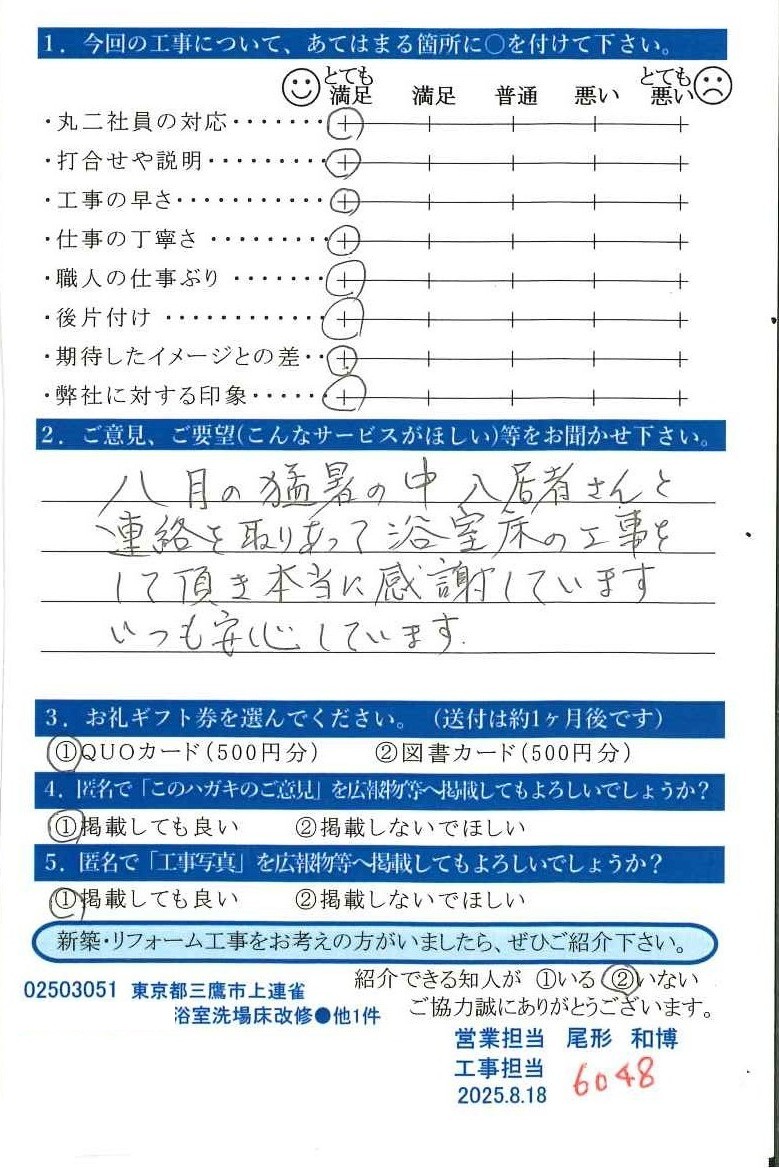 1．今回の工事について、あてはまる箇所に○を付けて下さい。
とても満足 満足 普通 悪い とても悪い
・丸二社員の対応・・・・・・・
・打合せや説明・・・・・・・・・
・工事の早さ・・・・・・・・・・・
・仕事の丁寧さ・・・・・・・・・
・職人の仕事ぶり・・・・・・・
・後片付け・・・・・・・・・・・・
・期待したイメージとの差・・
・弊社に対する印象・・・・・・
2．ご意見、ご要望(こんなサービスがほしい)等をお聞かせ下さい。
八月の猛暑の中 入居者さんと
連絡を取りあって浴室床の工事を
して頂き本当に感謝しています
いつも安心しています.
3．お礼ギフト券を選んでください。（送付は約1ヶ月後です）
①QUOカード（500円分） ②図書カード（500円分）
4．匿名で「このハガキのご意見」を広報物等へ掲載してもよろしいでしょうか？
①掲載しても良い ②掲載しないでほしい
5．匿名で「工事写真」を広報物等へ掲載してもよろしいでしょうか？
①掲載しても良い ②掲載しないでほしい
新築・リフォーム工事をお考えの方がいましたら、ぜひご紹介下さい。
紹介できる知人が ①いる ②いない
02503051 東京都三鷹市上連雀
ご協力誠にありがとうございます。
浴室洗場床改修●他1件
営業担当 尾形 和博
工事担当
6048
2025.8.18